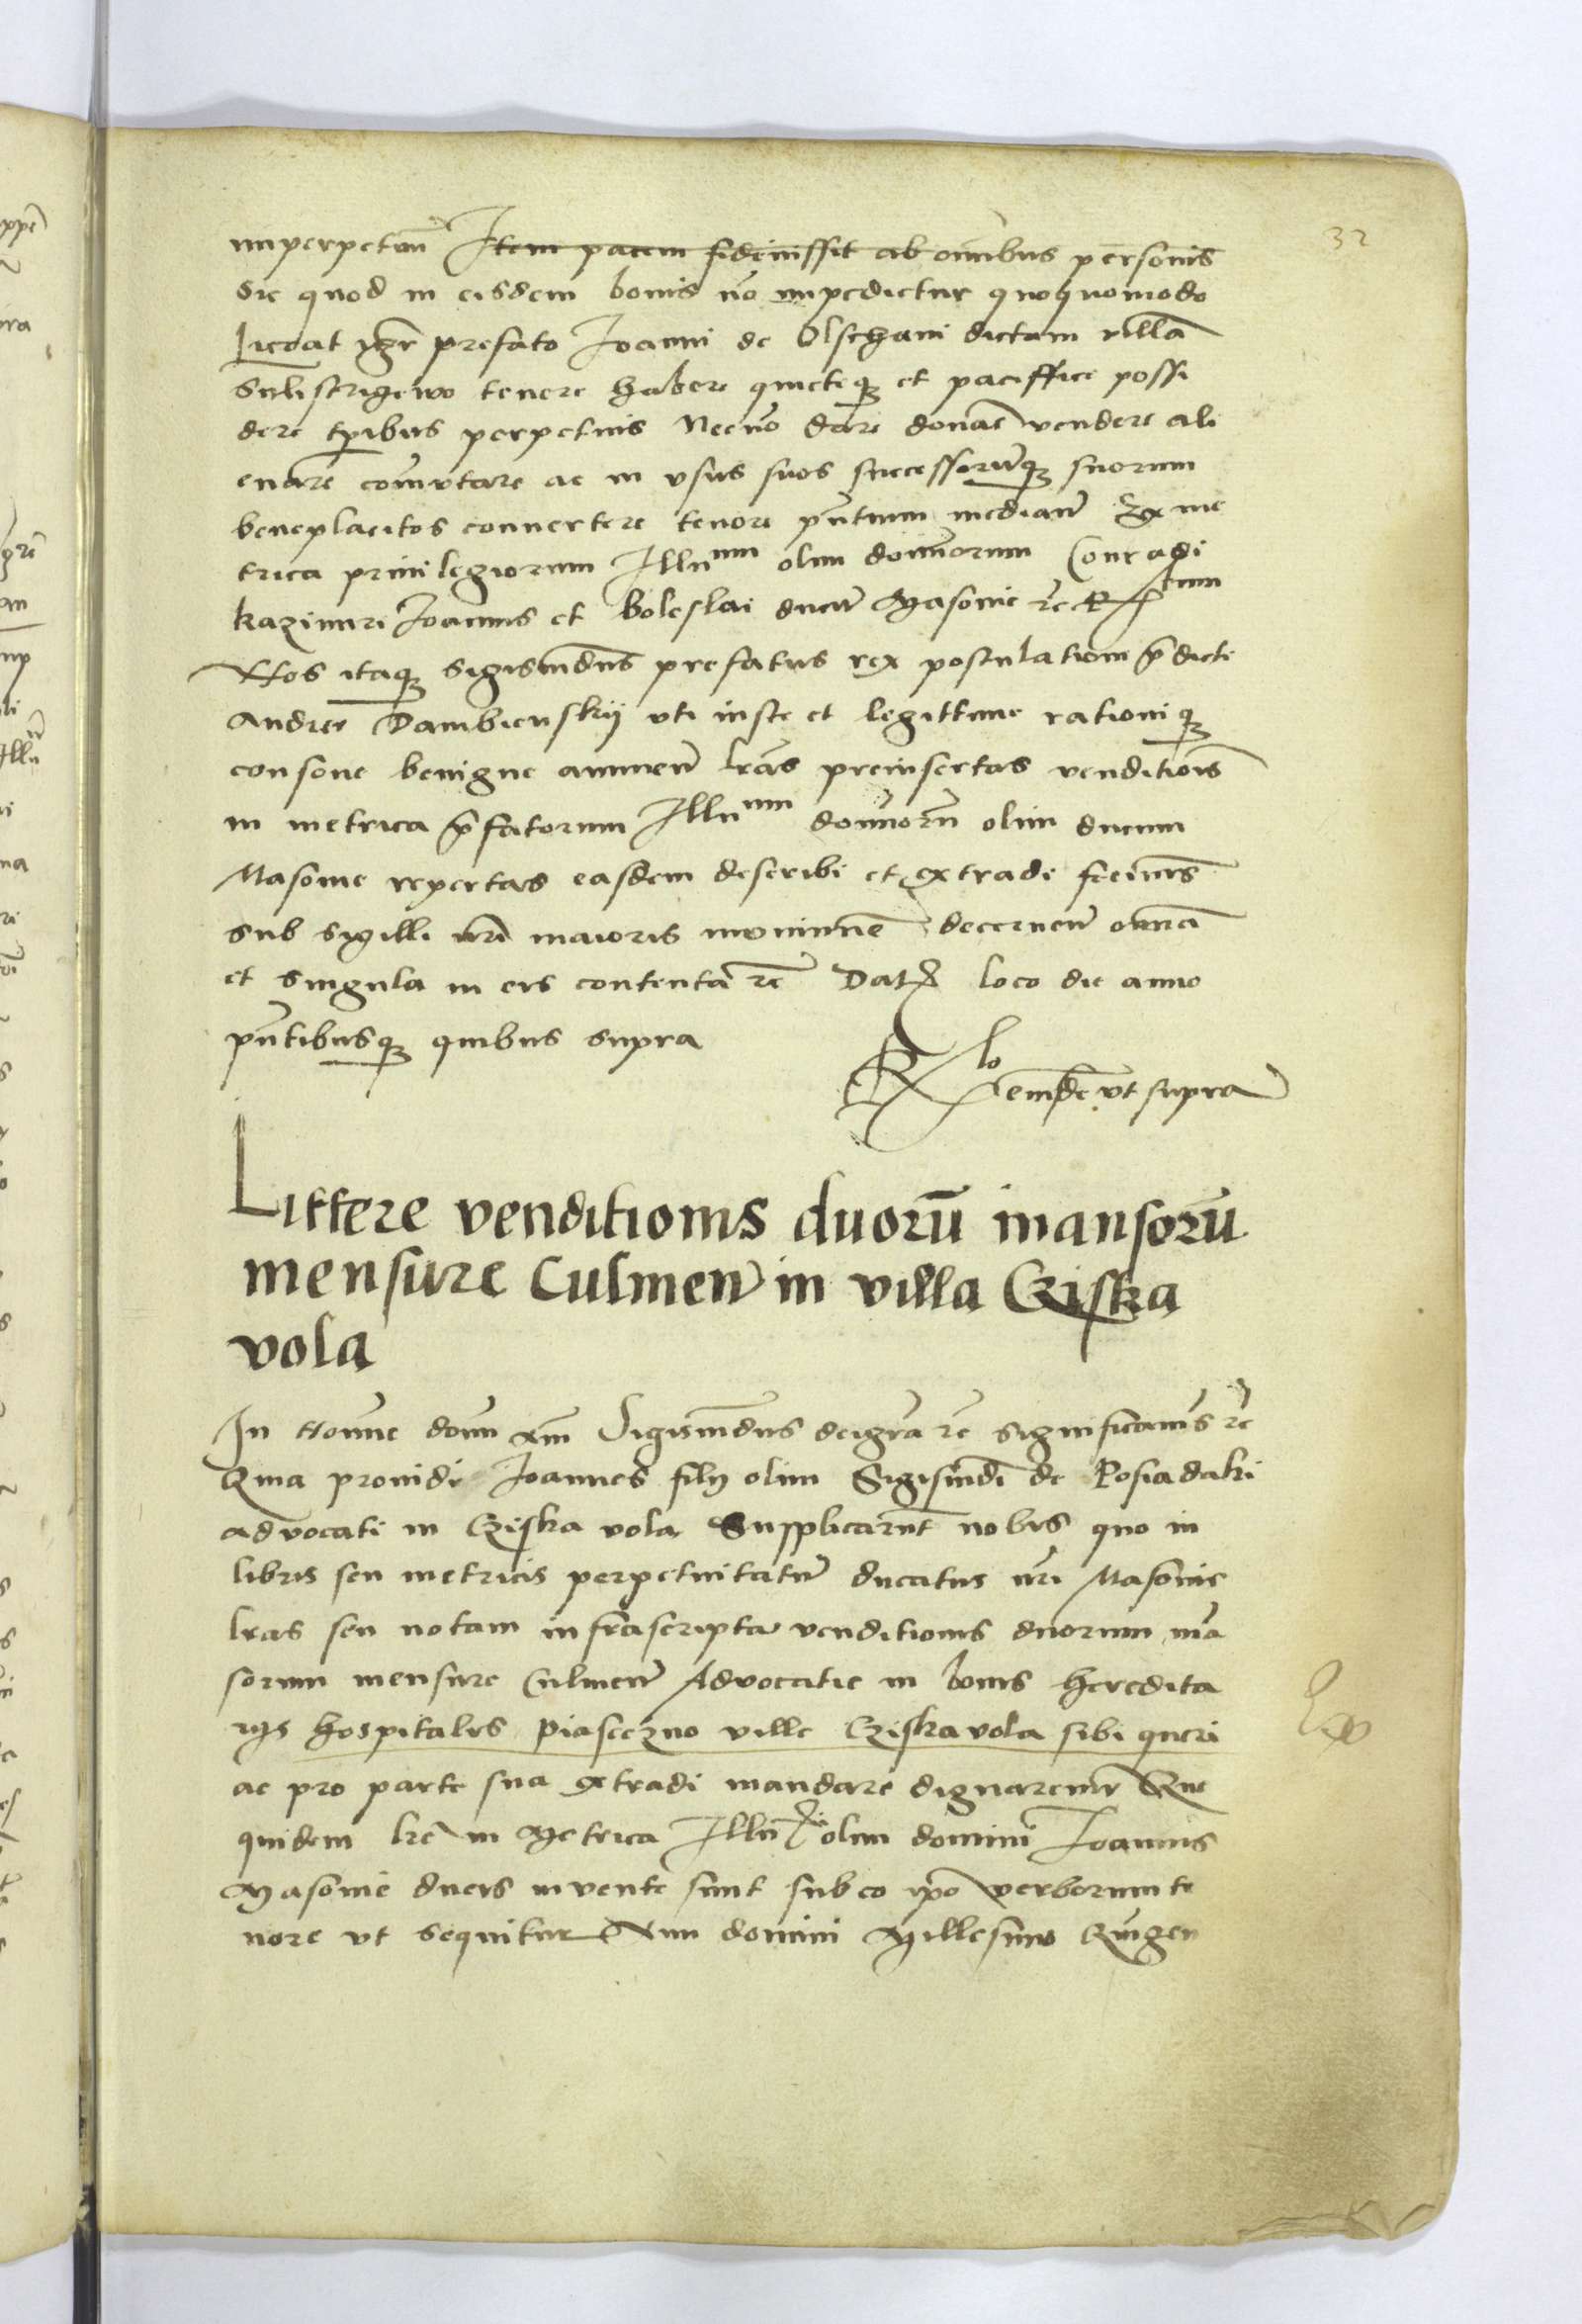 32
imperpetuũ Item pacem fideiussit ab omnibus personis
sic quod in eisdem bonis nõ impedietur quoquomodo
Liceat igr̃ prefato Joanni de Olschani dictam villã
Sulistrigewo tenere habere quieteq et paciffice possi
dere tp̃ribus perpetuis Necnõ dare donar̃ vendere ali
enare com̃utare ac in vsus suos successorũq suorum
beneplacitos convertere tenore pñtium mediañ Ex me
trica privilegiorum Illũ um olim dominorum Conradi
Kazimiri Joannis et Boleslai ducũ Masovie
Nos itaq Sigismũdus prefatus rex postulationi p̃dicti
Andree Dambienskij vti iuste et legittime rationiq
consone benigne annueñ lrãs preinsertas venditiois
in metrica p̃fatorum Illũ um dominorũ olim ducum
Masovie repertas easdem describi et extradi fecimus
sub sigilli nr̃i maioris munimine decerneñ omnia
et singula in eis contenta rc̃ Dat loco die anno
pñtibusq quibus supra
R̃lo eiusdẽ vt supra
Littere venditionis duorũ mansorũ
mensure Culmeñ in villa Cziska
vola
In Nomine domini am̃ Sigismũdus dei gr̃a rc̃ significamus rc̃
Quia providi Joannes filij olim Sigismũdi de Posiadali
advocati in Cziska vola Supplicarũt nobis quo in
libris seu metricis perpetuitatũ ducatus nr̃i Masovie
lras seu notam infrascripta venditionis duorum mã
sorum mensure Culmeñ Advocatie in bonis heredita
rijs hospitalis Piaseczno ville Cziska vola sibi queri
ac pro parte sua extradi mandare dignaremur Que
quidem lrẽ in Metrica Illũ olim domini Joannis
Masovie ducis invente sunt sub eo ipõ verborum te
nore vt sequitur Ann domini Millesimo Quingen